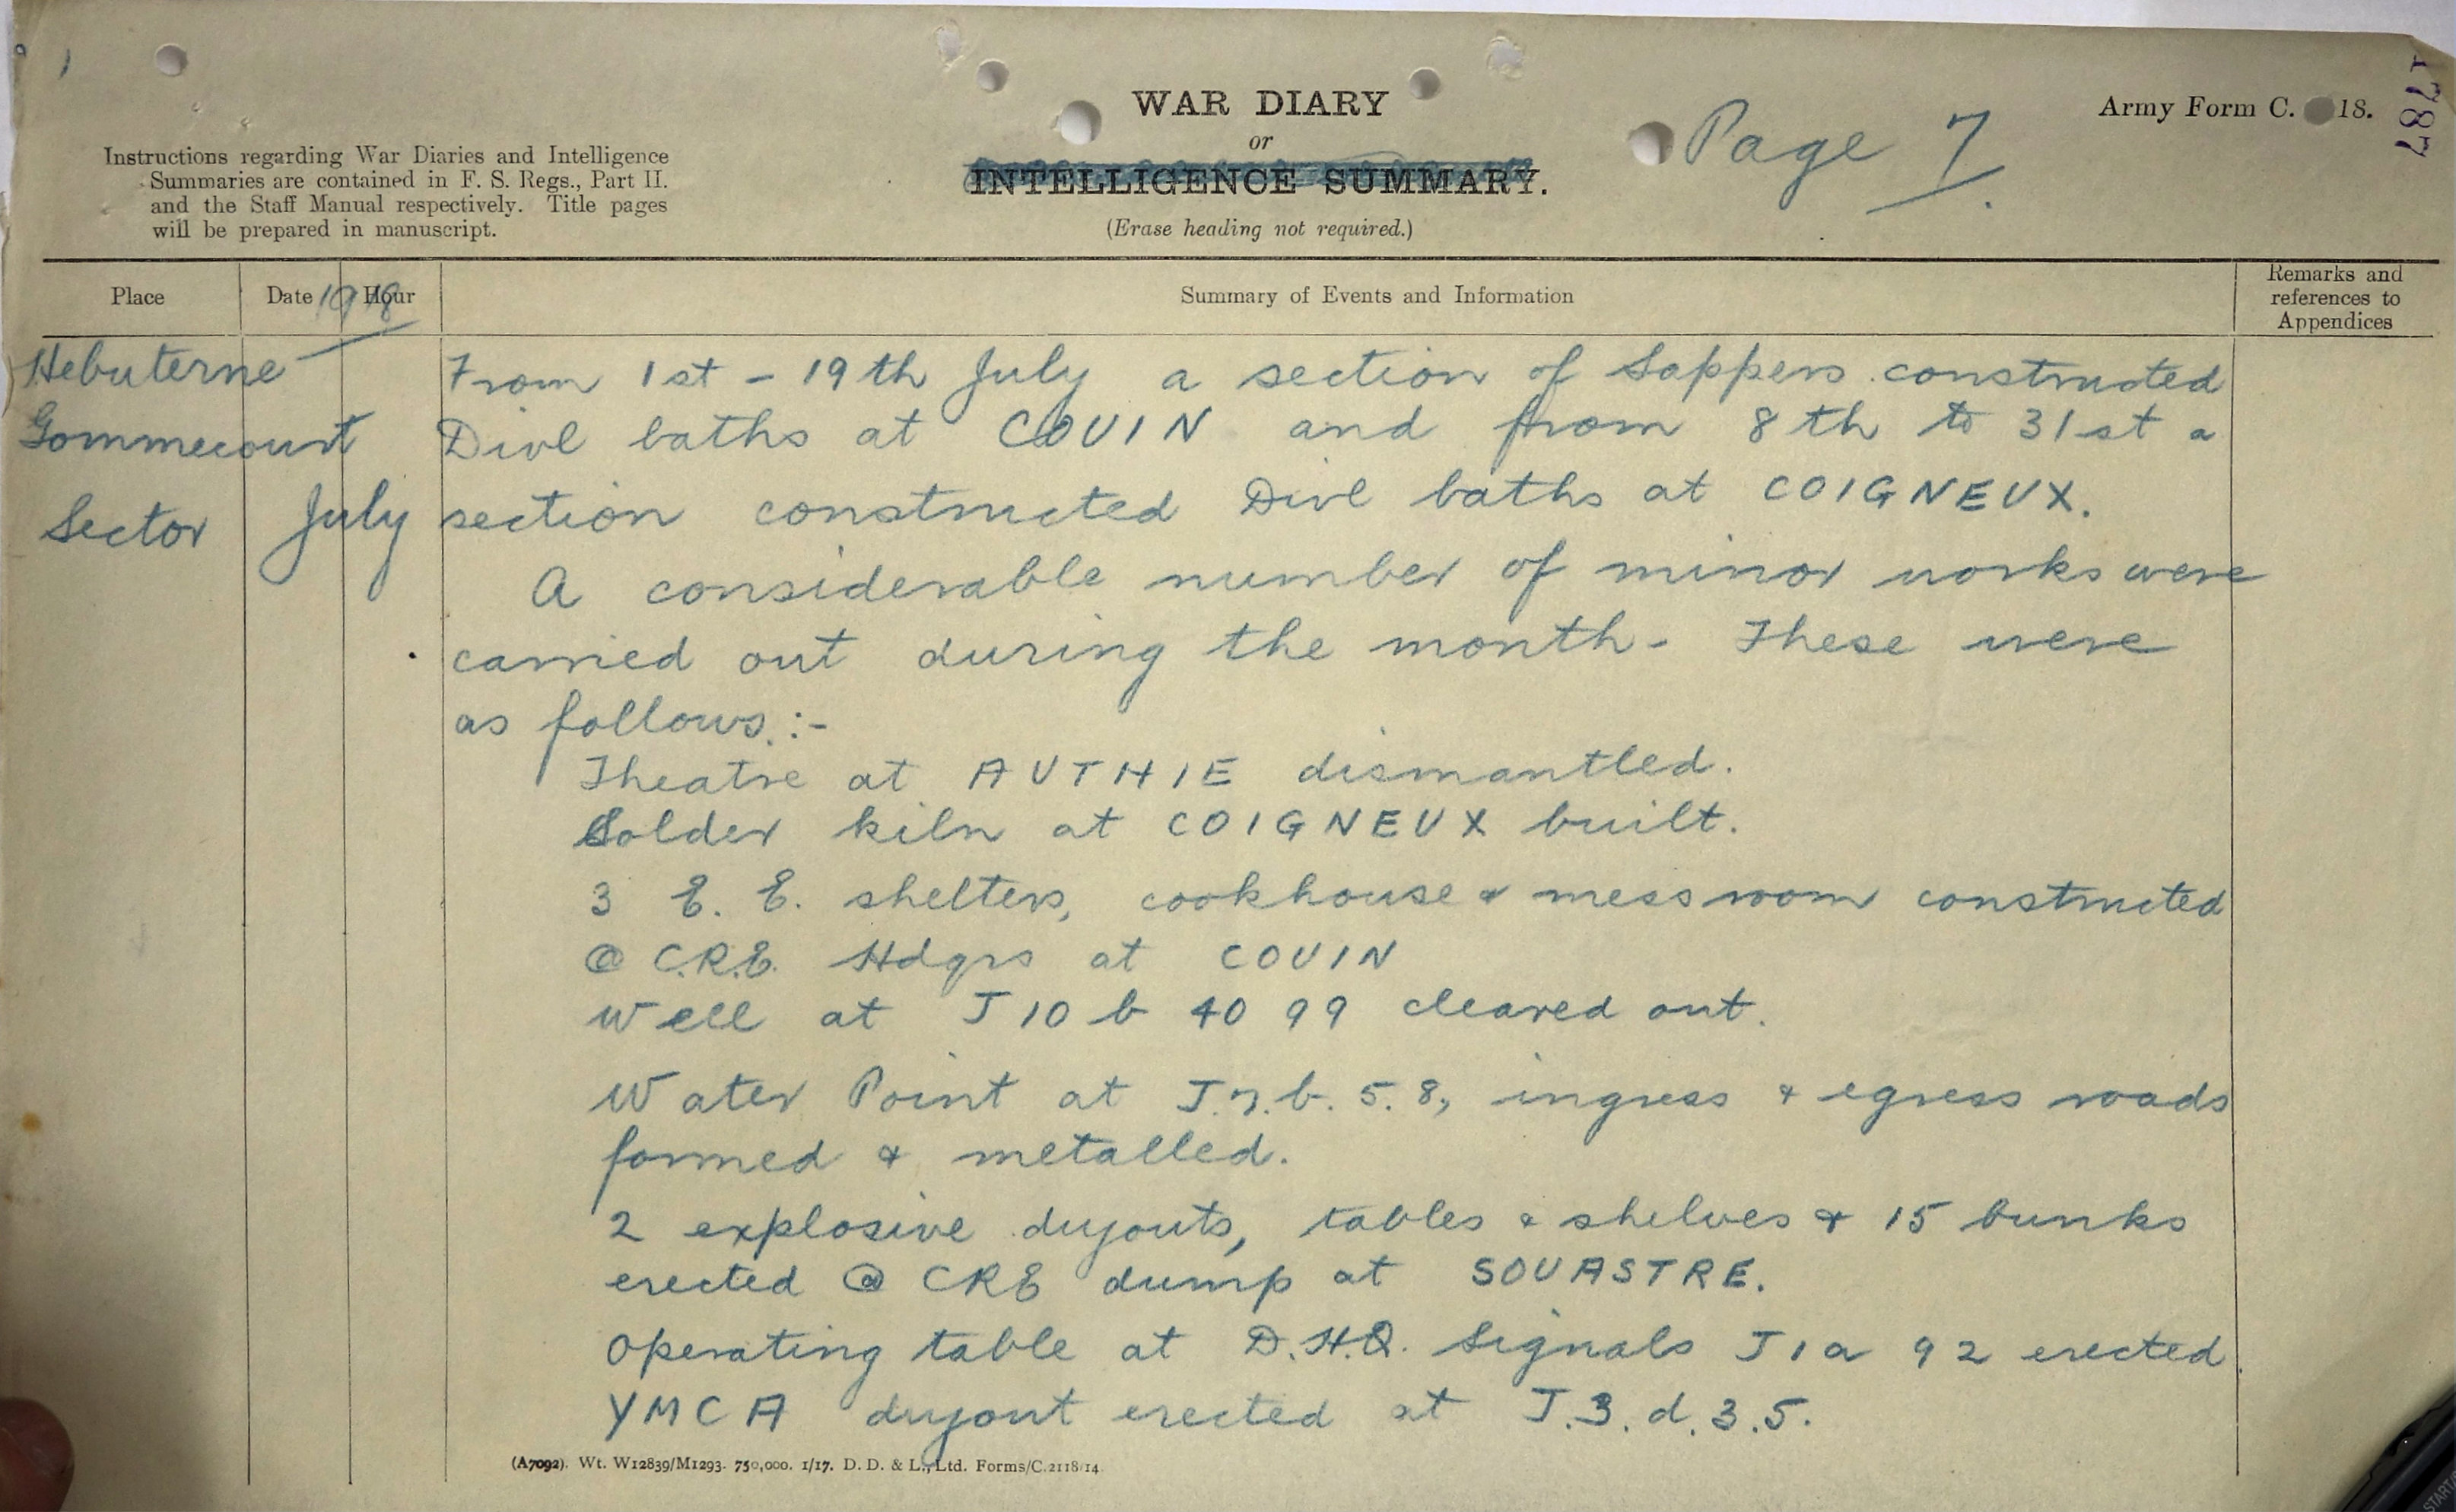 1787
WAR DIARY
or
INTELLIGENCE SUMMARY.
(Erase heading not required.)
Page 7.
Army Form C. 18.
Instructions regarding War Diaries and Intelligence
Summaries are contained in F. S. Regs., Part II.
and the Staff Manual respectively. Title pages
will be prepared in manuscript.
Place
Date 1918 Hour
Summary of Events and Information
Remarks and
references to
Appendices
Hebuterne
Gommecourt
Sector July
From 1st - 19th July a section of Sappers constructed
Divl baths at COUIN and from 8th to 31st a
section constructed Divl baths at COIGNEUX.
A considerable number of minor works were
carried out during the month. These were
as follows:-
Theatre at AUTHIE dismantled.
Solder kiln at COIGNEUX built.
3 E. E. shelters, cookhouse & mess room constructed
@ C.R.E. Hdqrs at COUIN
Well at J 10 b 40 99 cleared out.
Water Point at J.7.b.5.8, ingress & egress roads
formed & metalled.
2 explosive dugouts, tables & shelves & 15 bunks
erected @ CRE dump at SOUASTRE.
Operating table at D.H.Q. Signals J 1 a 9 2 erected
YMCA dugout erected at J.3.d.3.5.
(A7092). Wt. W12839/M1293. 750,000. 1/17. D. D. & L., Ltd. Forms/C.2118/14.